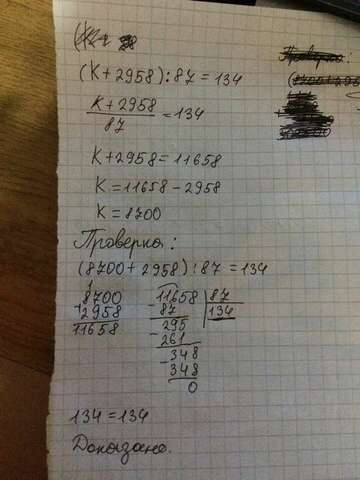 (K+2958):87=134
K+2958
87
=134
K+2958=11658
K=11658-2958
K=8700
Проверка:
(8700+2958):87=134
1
8700
+2958
11658
-11658 87
87 134
-295
261
-348
348
0
134=134
Доказано.